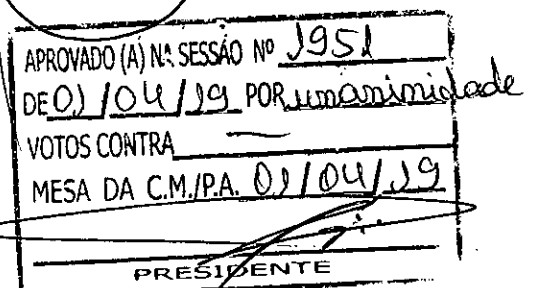 APROVADO (A) NA SESSÃO Nº 1951
DE 01/04/19 POR unanimidade
VOTOS CONTRA —
MESA DA C.M./P.A. 01/04/19
PRESIDENTE